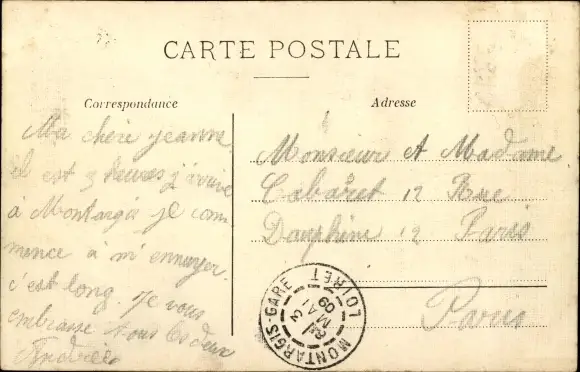 CARTE POSTALE
Correspondance
Adresse
Ma chère Jeanne
il est 3 heures j'arrive
a Montargis je com
mence à m'ennuyer
c'est long. Je vous
embrasse tous les deux
Monsieur et Madame
Cabaret 12 Rue
Dauphine 12 Paris
Paris
MONTARGIS-GARE
MAI
09
LOIRET